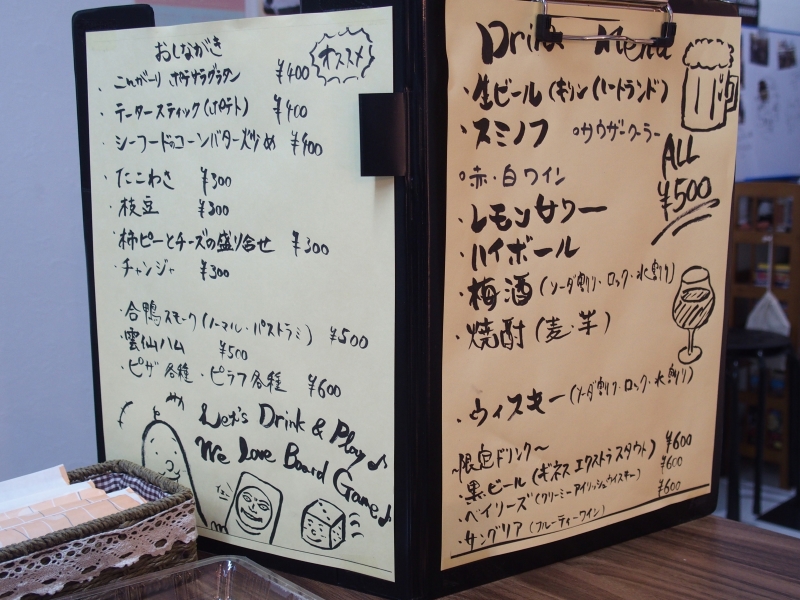 おしながき
オススメ
・こんがーり ポテサラグラタン ¥400
・テータースティック(ポテト) ¥400
・シーフードのコーンバター炒め ¥400
・たこわさ ¥300
・枝豆 ¥300
・柿ピーとチーズの盛り合せ ¥300
・チャンジャ ¥300
・合鴨スモーク(ノーマル・パストラミ) ¥500
・雲仙ハム ¥500
・ピザ各種・ピラフ各種 ¥600
Let's Drink & Play♪
We Love Board Game♪
Drink Menu
・生ビール(キリンハートランド)
・スミノフ ◦サウザークーラー
◦赤・白ワイン
ALL ¥500
・レモンサワー
・ハイボール
・梅酒(ソーダ割り・ロック・水割り)
・焼酎(麦・芋)
・ウィスキー(ソーダ割り・ロック・水割り)
~限定ドリンク~
・黒ビール(ギネスエクストラスタウト) ¥600
・ベイリーズ(クリーミーアイリッシュウィスキー) ¥600
・サングリア(フルーティーワイン) ¥600